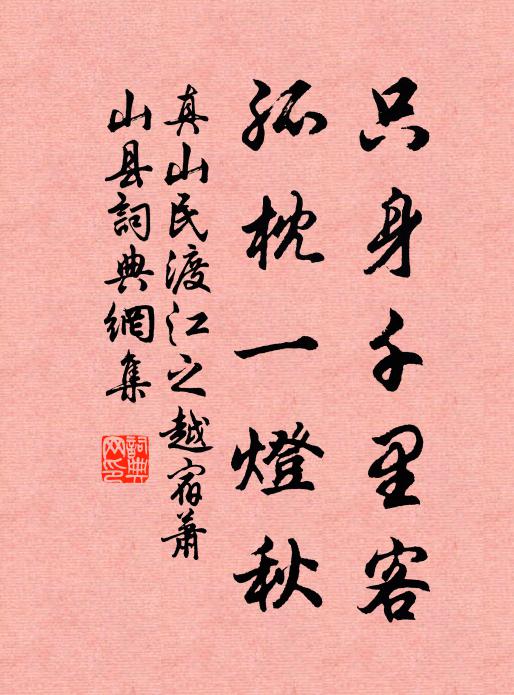 只身千里客
孤枕一燈秋
真山民渡江之越宿蕭
山县詞典網集
詞典网印